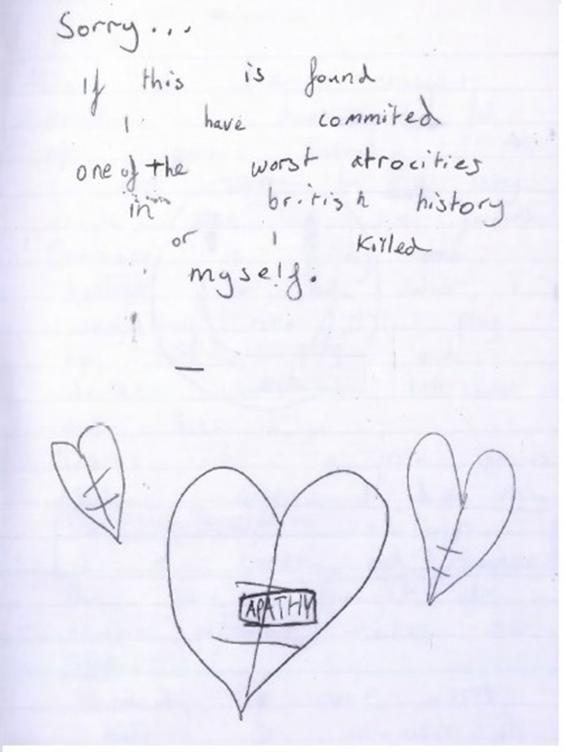 Sorry...
If this is found
I have commited
one of the worst atrocities
in british history
or I killed
myself.
APATHY